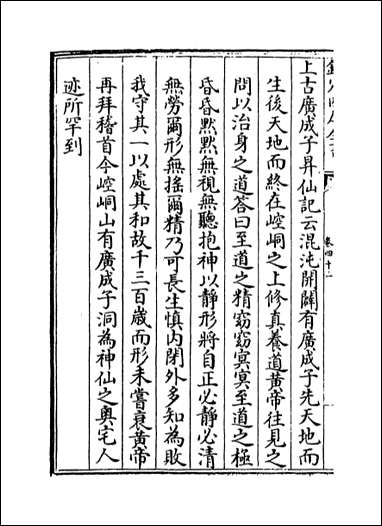 上古廣成子昇仙記云混沌開闢有廣成子先天地而
生後天地而終在崆峒之上修真養道黃帝往見之
問以治身之道答曰至道之精窈窈冥冥至道之極
昏昏默默無視無聽抱神以静形將自正必静必清
無勞爾形無搖爾精乃可長生慎内閉外多知為敗
我守其一以處其和故千三百歲而形未嘗衰黃帝
再拜稽首今崆峒山有廣成子洞為神仙之奥宅人
迹所罕到
卷四十一